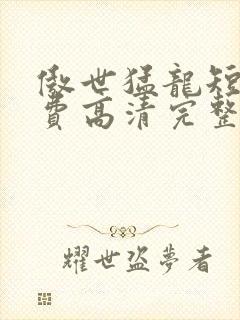 傲世猛龍短
費高清完整
耀世盜夢者